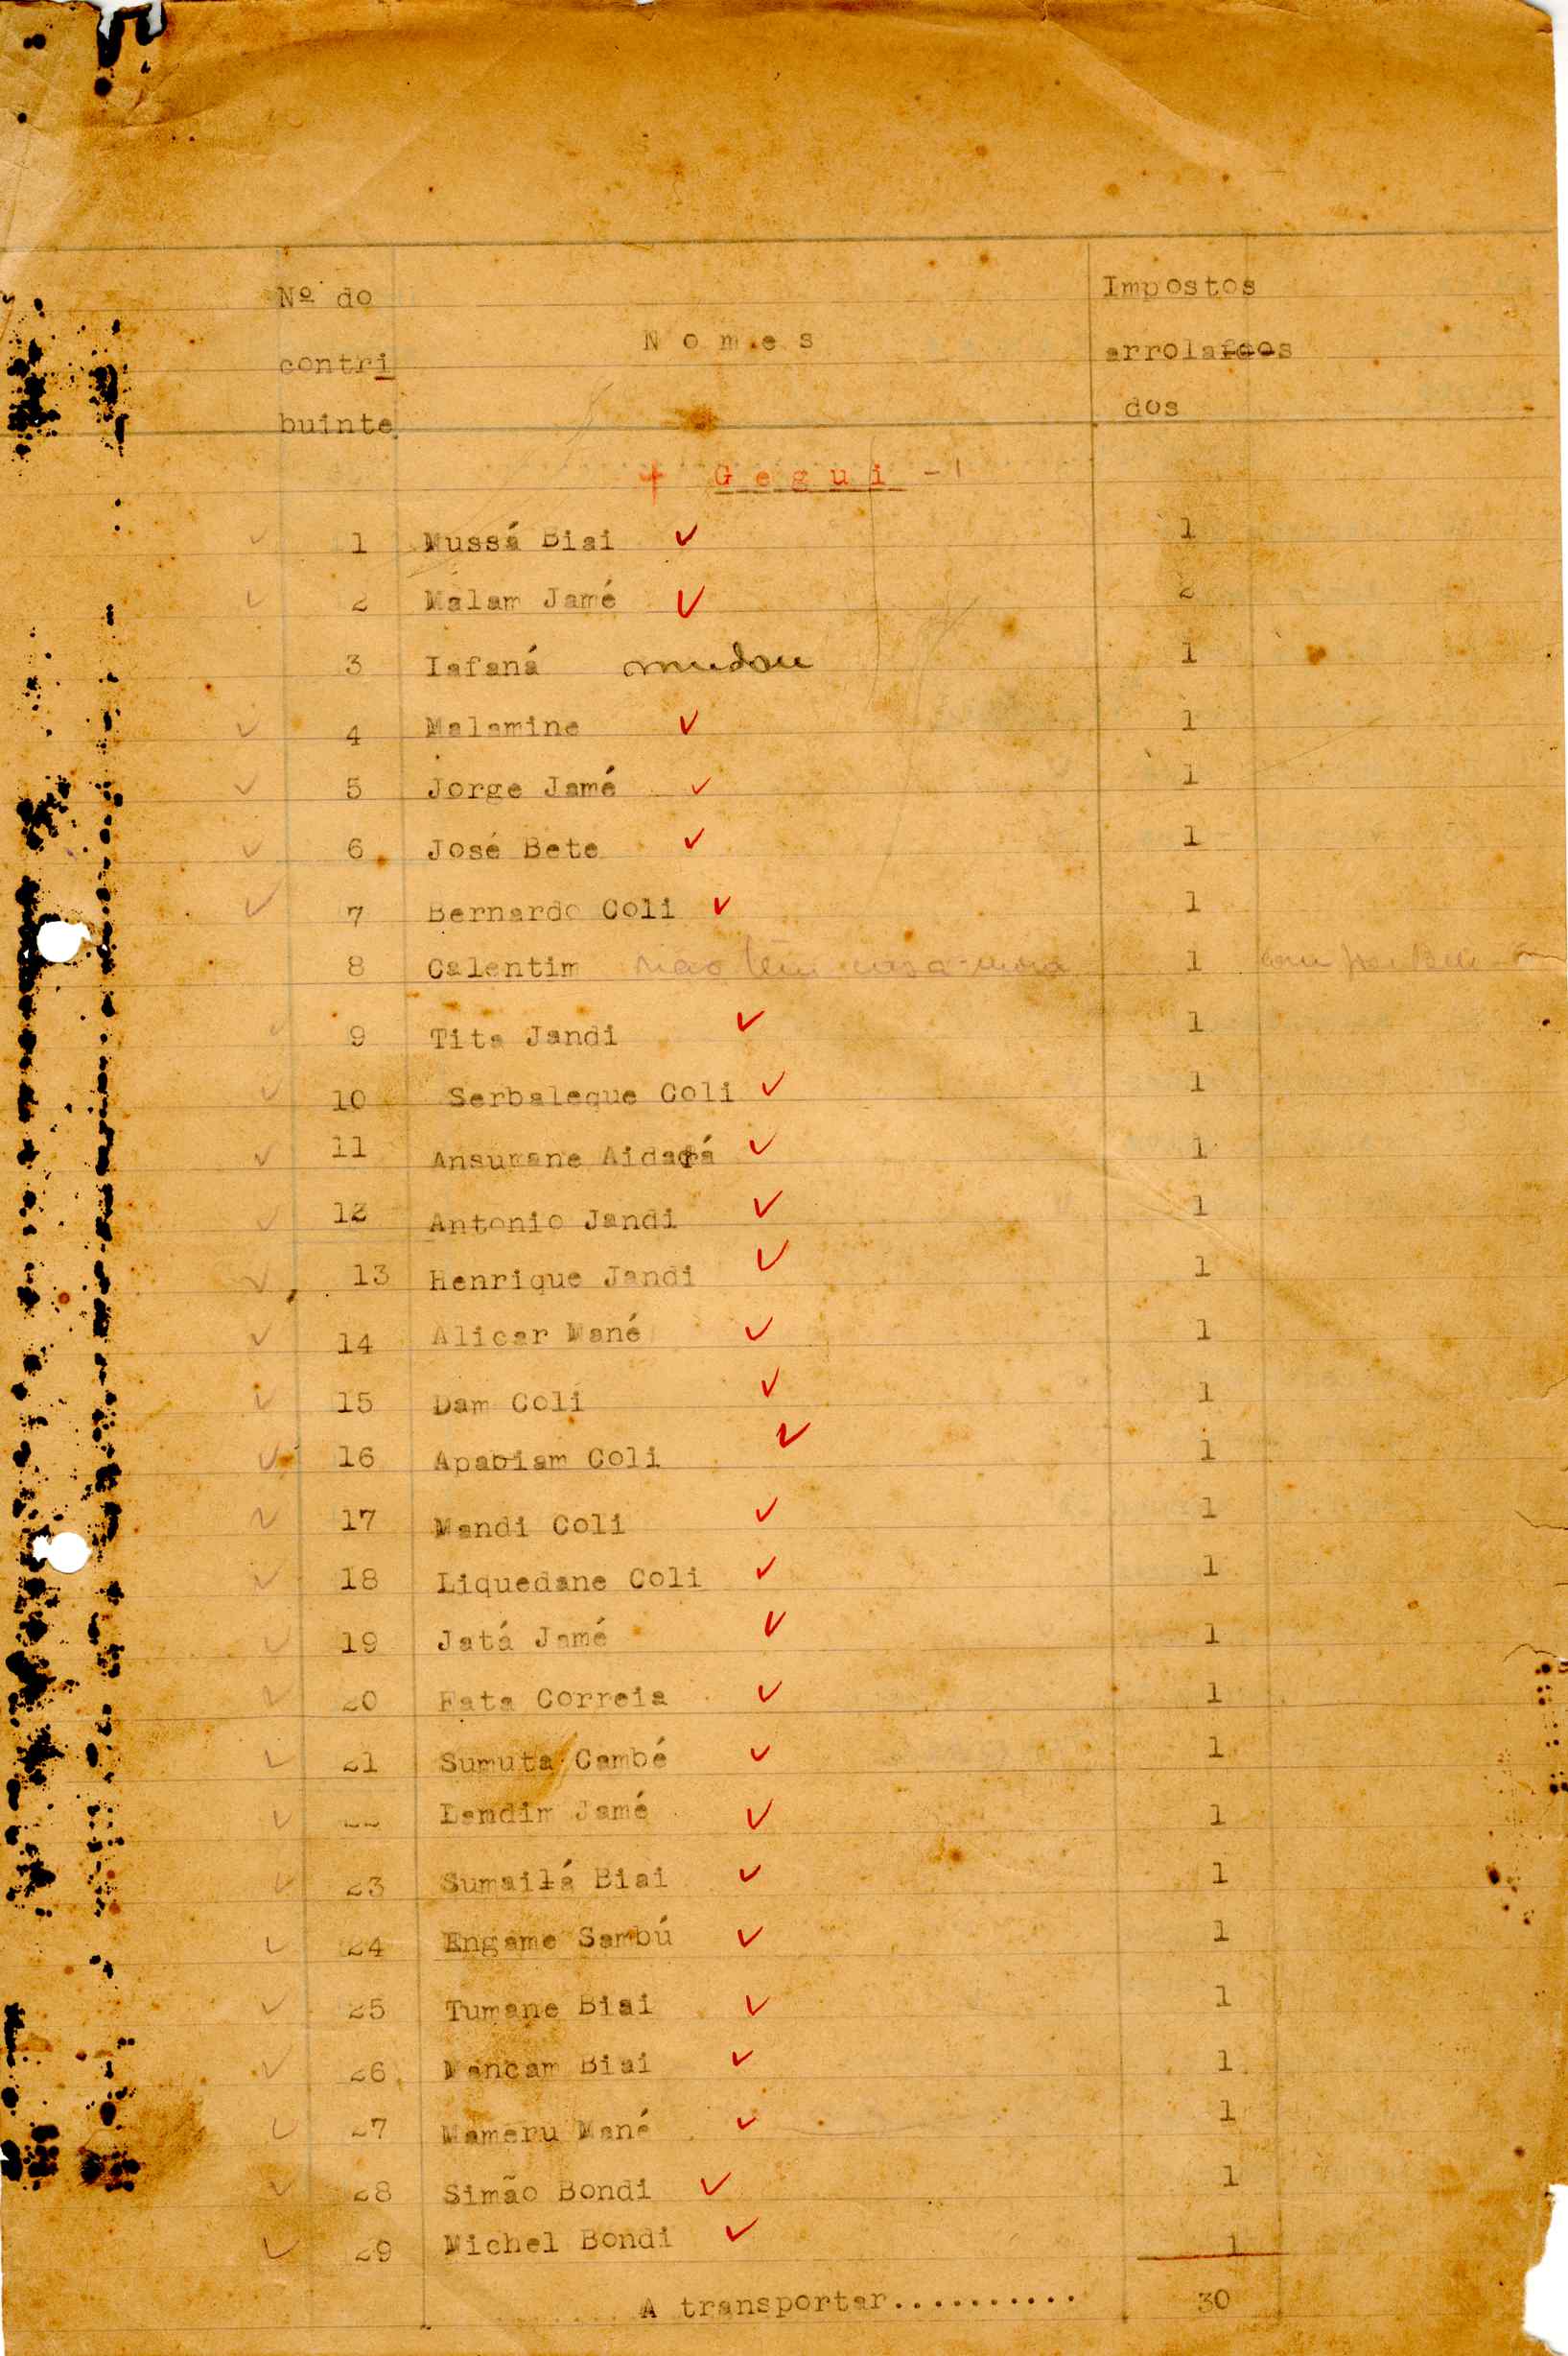 Nº do
contri
buinte
N o m e s
Impostos
arrolafdos
dos
+ G e g u i -
1 Mussá Biai ✓ 1
2 Malam Jamé ✓ 2
3 Iafaná mudou 1
4 Malamine ✓ 1
5 Jorge Jamé ✓ 1
6 José Bete ✓ 1
7 Bernardo Coli ✓ 1
8 Calentim não tem casa mora 1 com
9 Tita Jandi ✓ 1
10 Serbaleque Coli ✓ 1
11 Ansumane Aidará ✓ 1
12 Antonio Jandi ✓ 1
13 Henrique Jandi ✓ 1
14 Alicar Mané ✓ 1
15 Dam Coli ✓ 1
16 Apabiam Coli ✓ 1
17 Mandi Coli ✓ 1
18 Liquedane Coli ✓ 1
19 Jatá Jamé ✓ 1
20 Fata Correia ✓ 1
21 Sumuta Cambé ✓ 1
22 Lamdim Jamé ✓ 1
23 Sumailá Biai ✓ 1
24 Engame Sambú ✓ 1
25 Tumane Biai ✓ 1
26 Mancam Biai ✓ 1
27 Mameru Mané ✓ 1
28 Simão Bondi ✓ 1
29 Michel Bondi ✓ 1
A transportar.......... 30